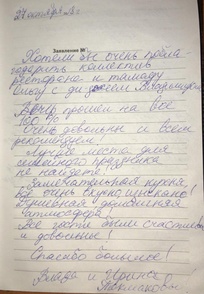 27 октября
Заявление №
Хотели бы очень поблагодарить
коллектив
ресторана и тамаду
Ольгу с ди джеем
Вечер прошёл на все
100%
Очень довольны и всем
рекомендуем!
Лучше места для
семейного праздника
не найдете!
Замечательная кухня
Всё очень вкусно, шикарно!
Душевная домашняя
атмосфера!
Все гости были счастливы
и довольные!
Спасибо большое!
Влада и Ирина